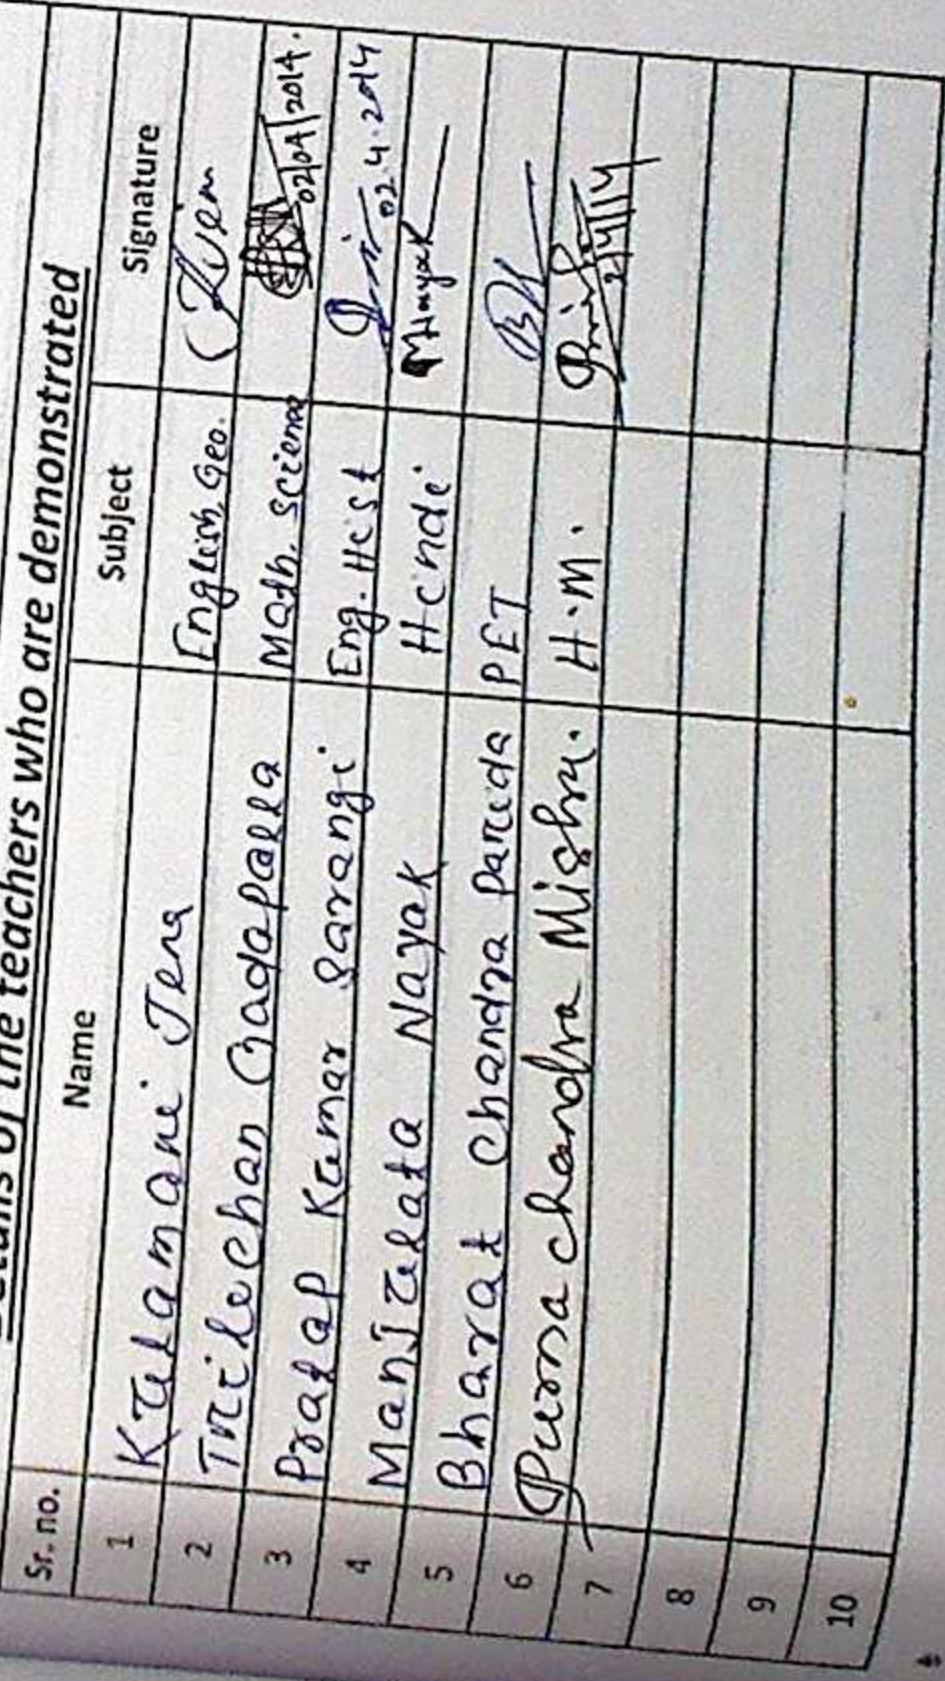 Details of the teachers who are demonstrated
Sr. no. Name Subject Signature
1 Kulamani Jena English, Geo.
2 Trilochan Badapalla Math, Science 02/04/2014.
3 Pratap Kumar Sarangi Eng. Hist 02.4.2014
4 Manjulata Nayak Hindi MNayak
5 Bharat Chandra Parida PET
6 Purna Chandra Mishra. H.M. 2/4/14
7
8
9
10